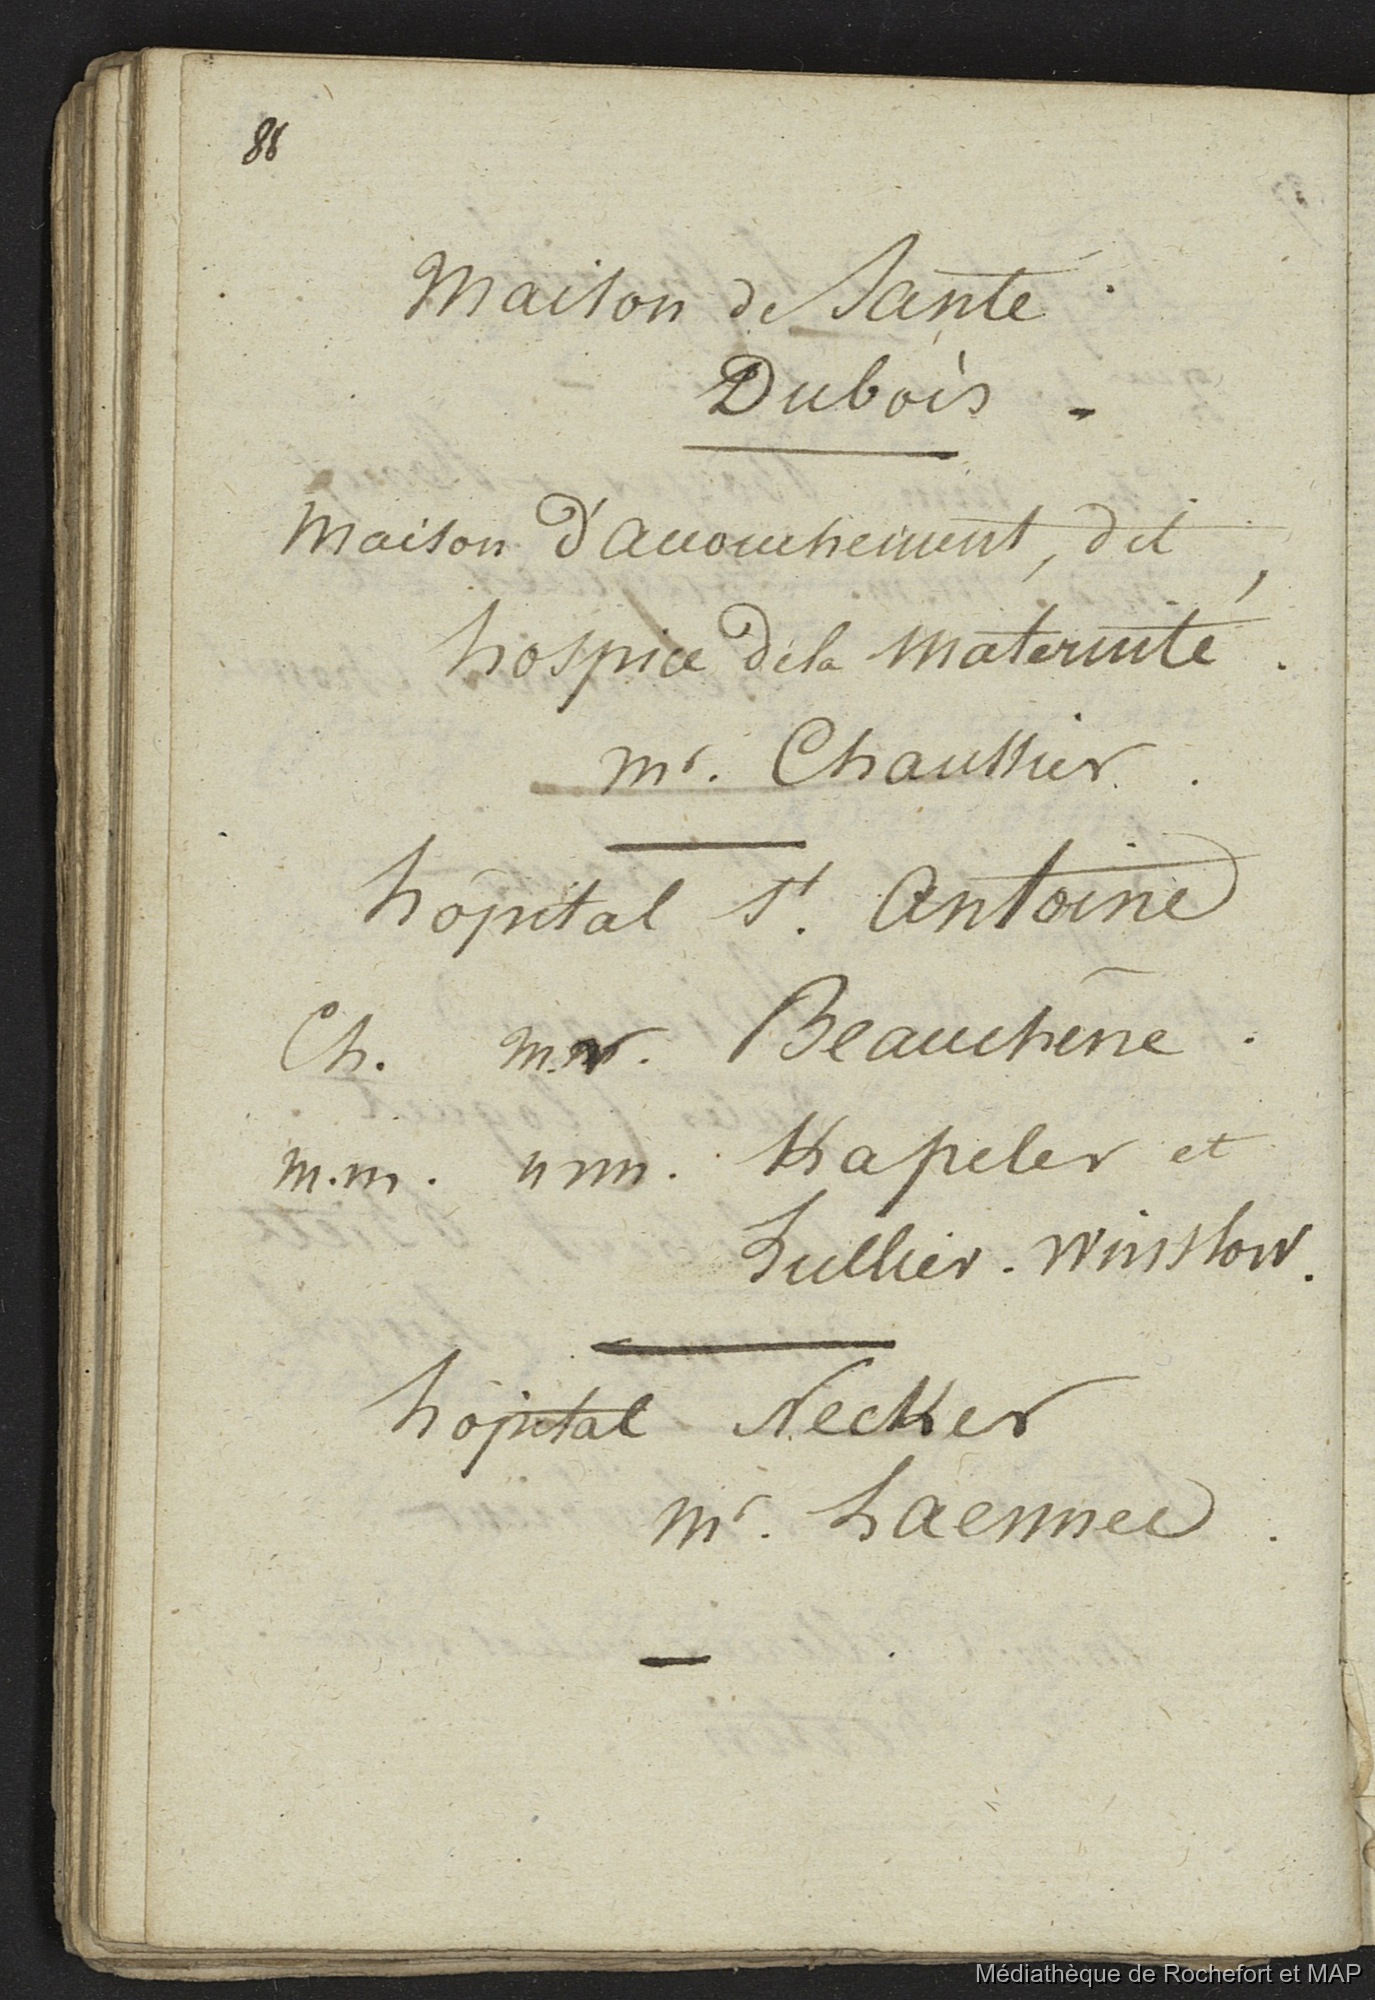 88
Maison de Santé.
Dubois -
Maison D'accouchement, dit
hospice dela maternité.
mr. Chaussier.
hôpital St. Antoine
Ch. mr. Beauchêne.
m.m. mm. Kapeler et
Lullier-Winslow.
hôpital Necker
mr. Laennec.
Médiathèque de Rochefort et MAP